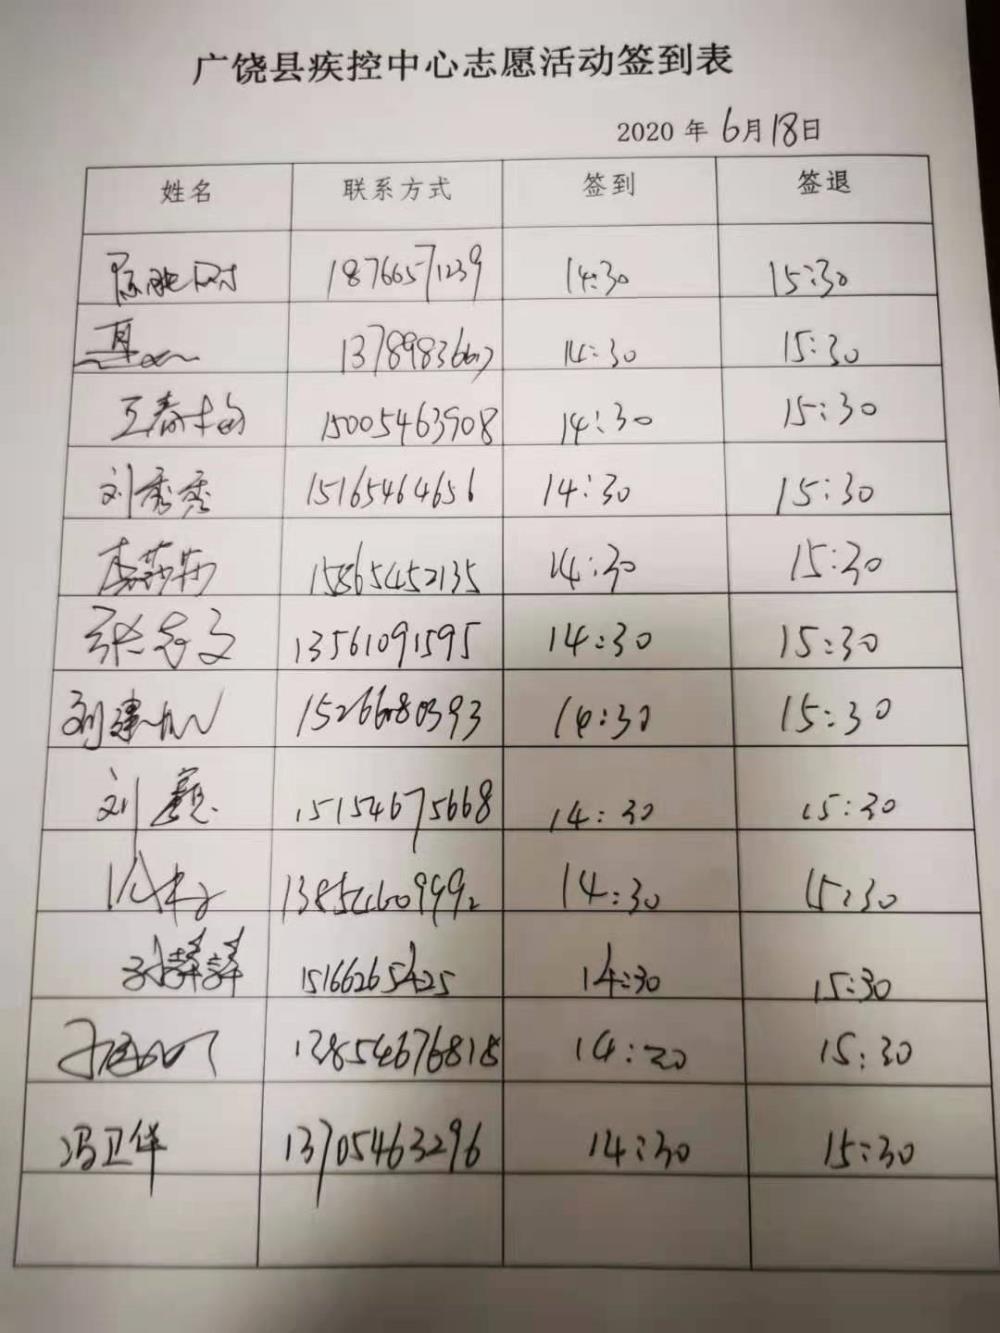 广饶县疾控中心志愿活动签到表
2020 年 6月18日
姓名 联系方式 签到 签退
18766571239 14:30 15:30
14:30 15:30
王春梅 15005463908 14:30 15:30
刘秀秀 15165464656 14:30 15:30
李莎莎 15865452135 14:30 15:30
张志文 13561091595 14:30 15:30
刘建 15266680393 14:30 15:30
刘 15154675668 14:30 15:30
13854609992 14:30 15:30
15166265425 14:30 15:30
13854676818 14:30 15:30
冯卫华 13705463296 14:30 15:30